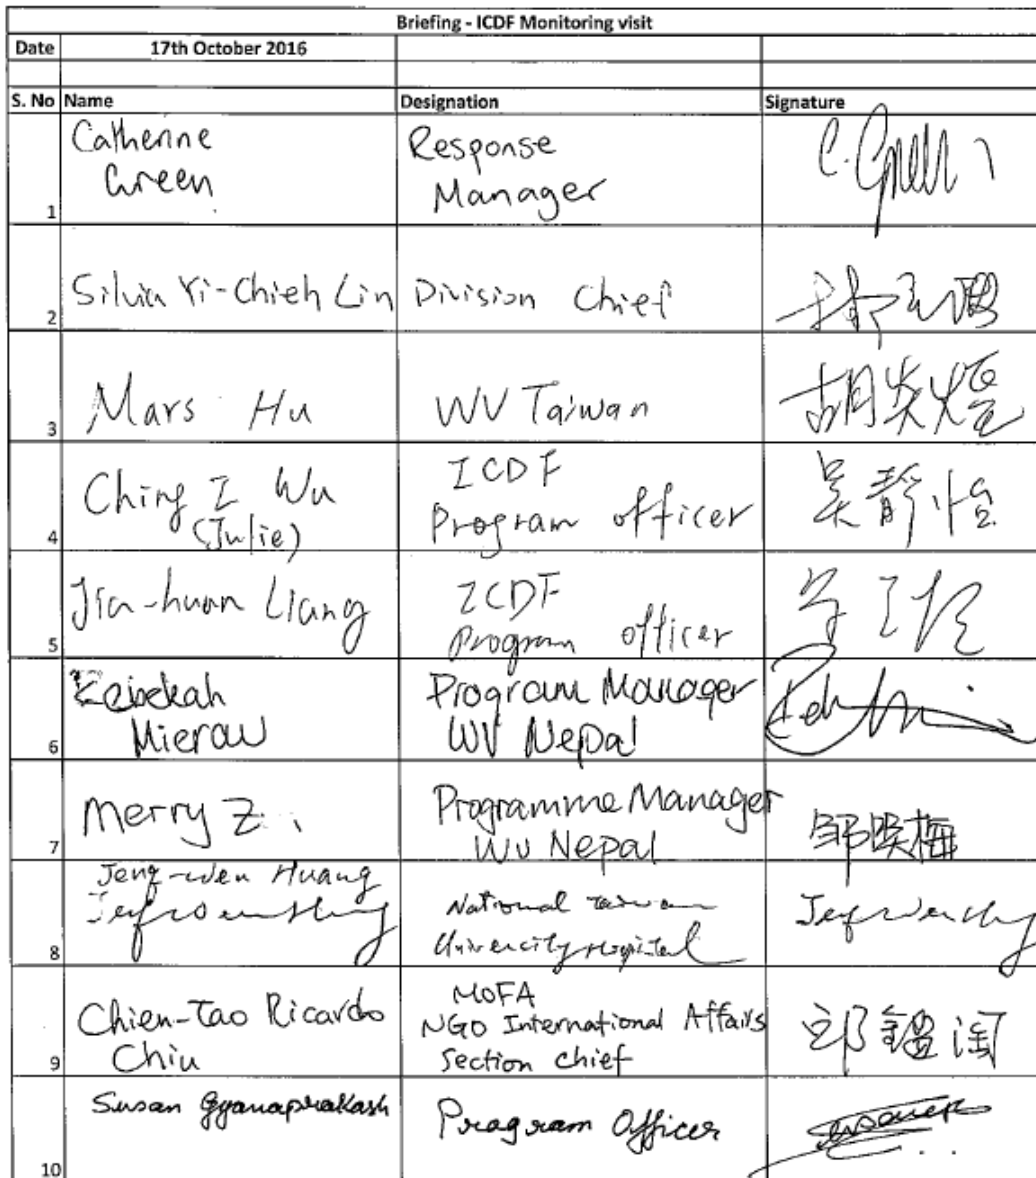 Briefing - ICDF Monitoring visit
Date 17th October 2016
S. No Name Designation Signature
Catherine Response C. Green
Green Manager
1
Silvia Yi-Chieh Lin Division Chief
2
Mars Hu WV Taiwan 胡炎煋
3
Ching I Wu ICDF 吳靜怡
(Julie) Program officer
4
Jia-huan Liang ICDF
Program officer
5
Rebekah Program Manager
Mierau WV Nepal
6
Merry Z. Programme Manager 邹晓梅
WV Nepal
7
Jeng-wen Huang
National Taiwan
Univercity Hospital
8
Chien-Tao Ricardo MOFA
Chiu NGO International Affairs
Section chief
9
Susan Gyanaprakash Program Officer
10